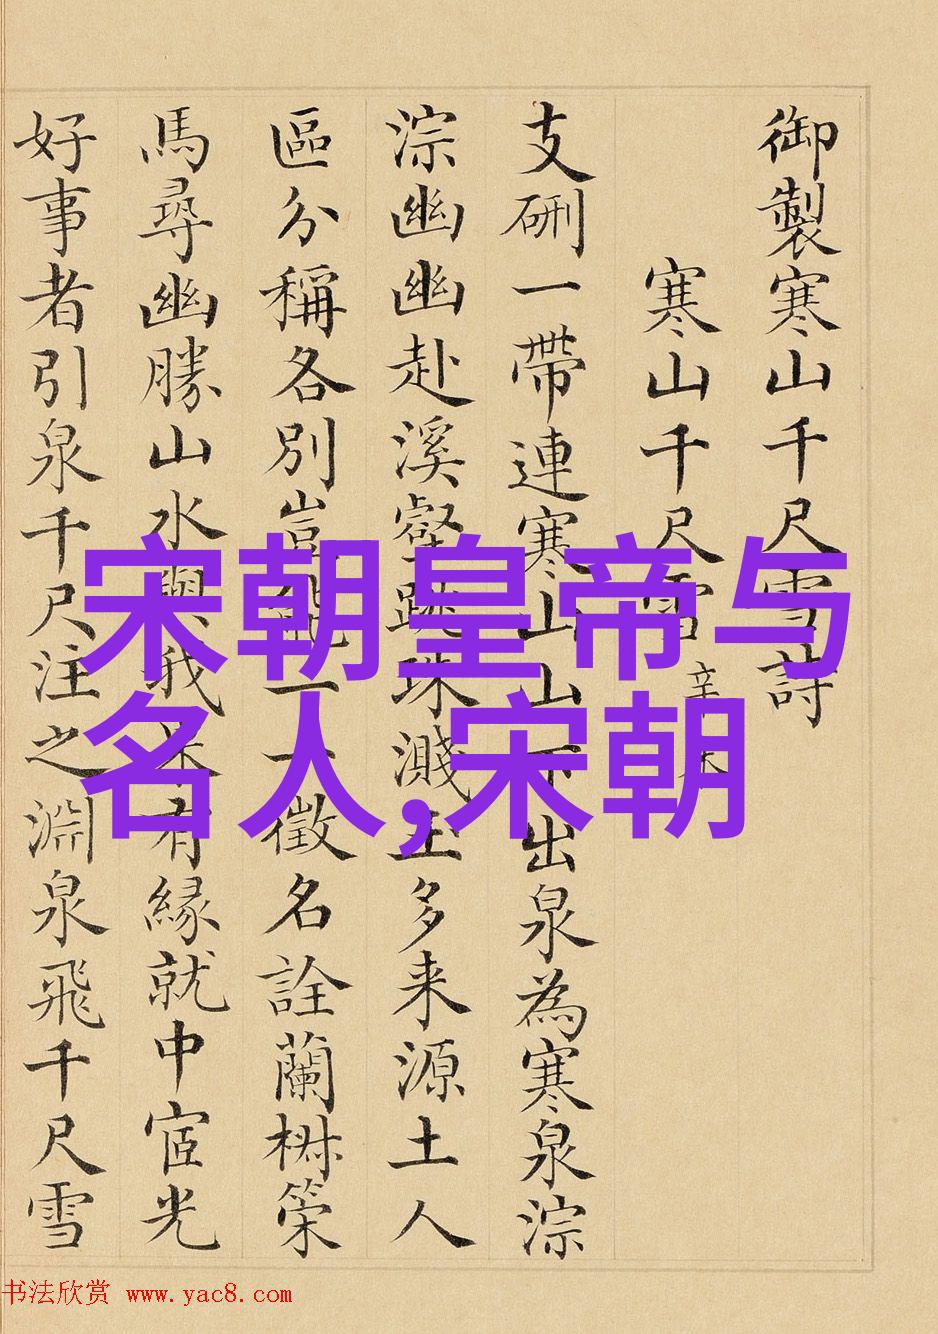 御製寒山千尺雪詩
寒山千尺雪
辛未
支硎一帶連寒山山下出泉為寒泉淙
淙幽幽赴溪壑跳珠濺玉多来源土人
區分稱各別豈一一徵名詮蘭椒策
馬尋幽勝山水與我未有緣就中宧光
好事者引泉千尺注之淵泉飛千尺雪
宋朝皇帝与
名人,宋朝
书法欣赏 www.yac8.com